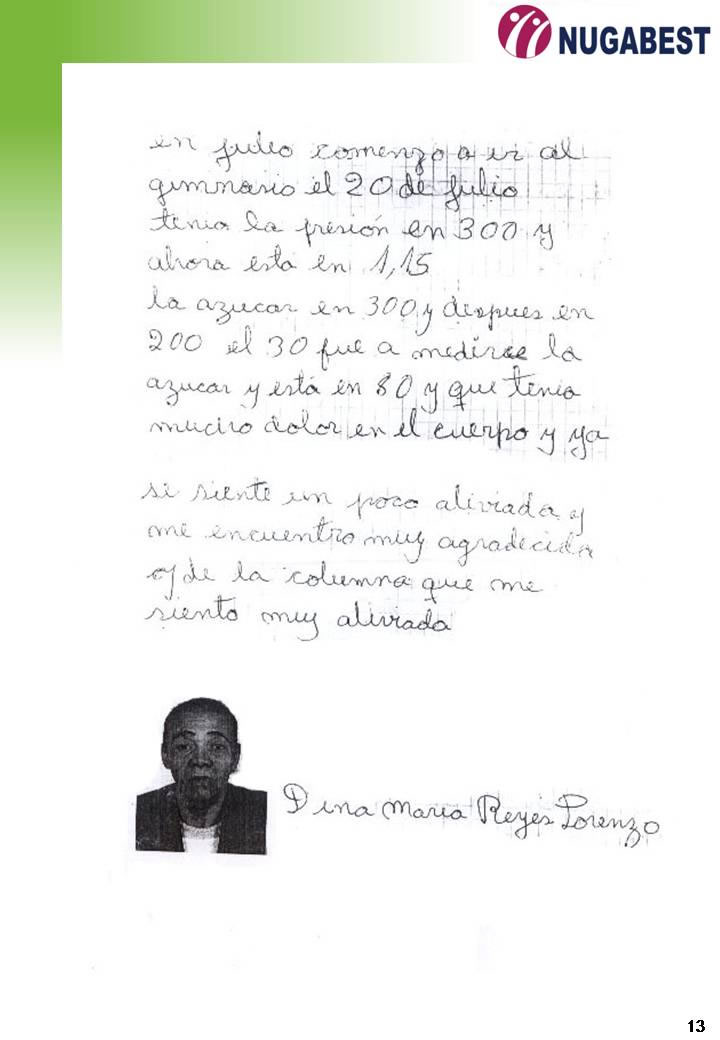 NUGABEST
en julio comenzo a ir al
gimnasio el 20 de julio
tenia la presión en 300 y
ahora esta en 1,15
la azucar en 300 y despues en
200 el 30 fue a medirse la
azucar y está en 80 y que tenia
mucho dolor en el cuerpo y ya
si siente un poco aliviada y
me encuentro muy agradecida
y de la columna que me
siento muy aliviada
Dina Maria Reyes Lorenzo
13